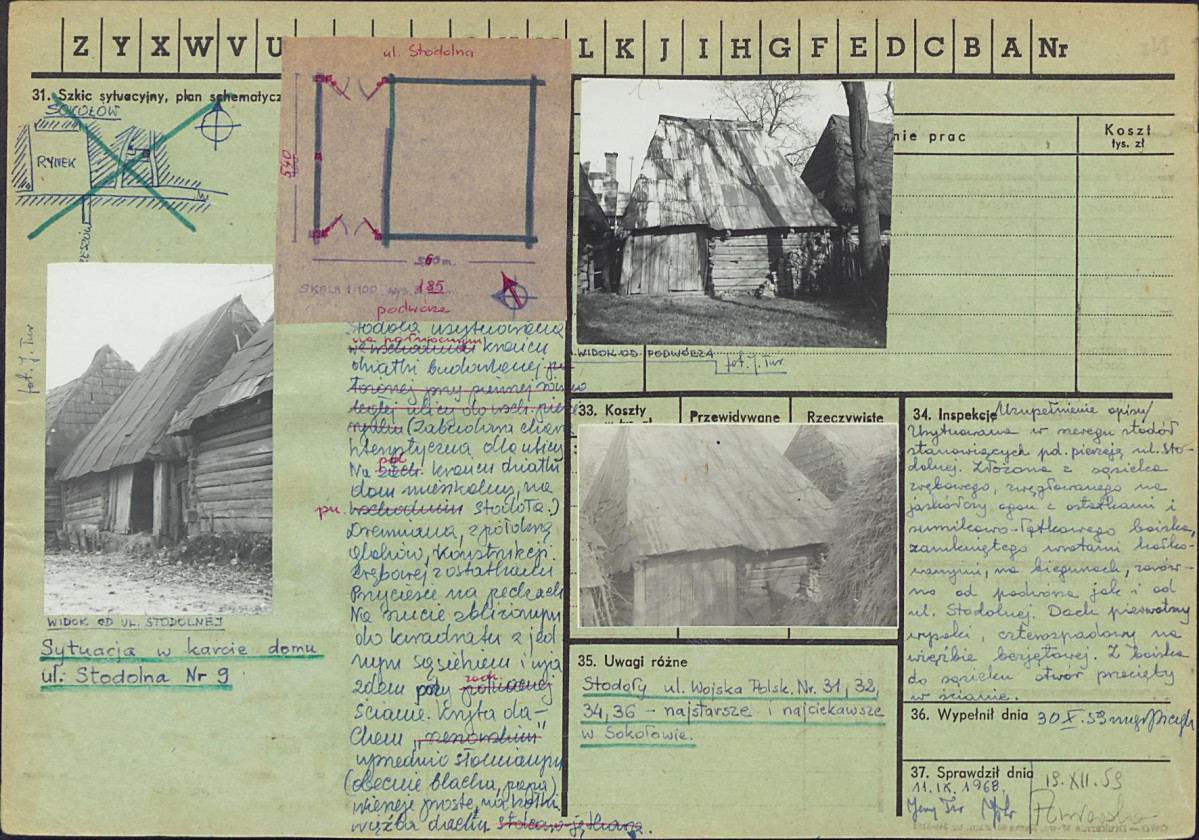 Z Y X W V U L K J I H G F E D C B A Nr
31. Szkic sytuacyjny, plan schematycz
SOKOŁÓW
RYNEK
ul. Stodolna
540
m.
SKALA 1:100
185
podwórze
fot. J. Tur
WIDOK OD UL. STODOLNEJ
Sytuacja w karcie domu
ul. Stodolna Nr 9
Stodoła usytuowana
na północnym
krańcu
działki budowlanej
(Zabudowa chara
kterystyczna dla ulicy
Na płd. krańcu działki
dom mieszkalny, na
pn. wschodnim stodoła.)
Drewniana, z półokrą
glaków, konstrukcji
zrębowej z ostatkami
Przyciesie na peckach
Na rzucie zbliżonym
do kwadratu z jed
nym sąsiekiem i wja
zdem przy zach. północnej
ścianie. Kryta da-
chem
uprzednio słomianym
(obecnie blacha, papa)
więźba dachu stolcowo-jętkowa.
nie prac
Koszt
tys. zł
WIDOK OD PODWÓRZA
fot. J. Tur
33. Koszty
w tys. zł
Przewidywane
Rzeczywiste
34. Inspekcje
Uzupełnienie opisu/
Usytuowana w szeregu stodół
stanowiących pd. pierzeję ul. Sto-
dolnej. Złożona z sąsieka
zrębowego, zwęgłowanego na
jaskółczy ogon z ostatkami i
sumikowo-łątkowego boiska,
zamkniętego wrotami kołko-
wanymi, na biegunach, zarów-
no od podwórza jak i od
ul. Stodolnej. Dach pierwotny
wysoki, czterospadowy na
więźbie bezjętkowej. Z boiska
do sąsieku otwór przecięty
w ścianie.
35. Uwagi różne
Stodoły ul. Wojska Polsk. Nr. 31, 32,
34, 36 - najstarsze i najciekawsze
w Sokołowie.
36. Wypełnił dnia 30 X. 59 mgr
37. Sprawdził dnia 19. XII. 59
11. IX. 1968
Jerzy Tur